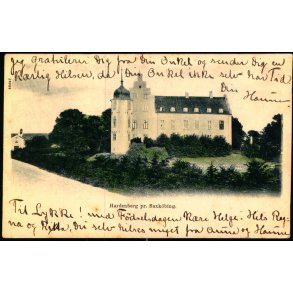 jeg gratulerer Dig fra Din Onkel og sender Dig en
kærlig Hilsen, da Din Onkel ikke selv har Tid
Din Hanne
Hardenberg pr. Saxköbing.
Til Lykke! med Fødselsdagen Kære Helge. Hels Reg-
na og Ditta, Du selv hilses meget fra Anne og Hanne